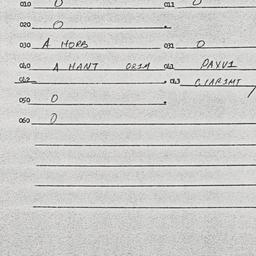 010 0 011 0
020 0
030 A HORB 031 0
040 A HANT 041 PAYV1
042 043
050 0
060 0